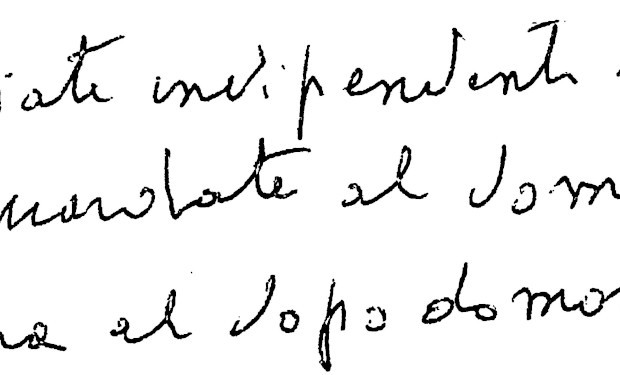 iate indipendenti
guardate al dom
ma al dopo domo